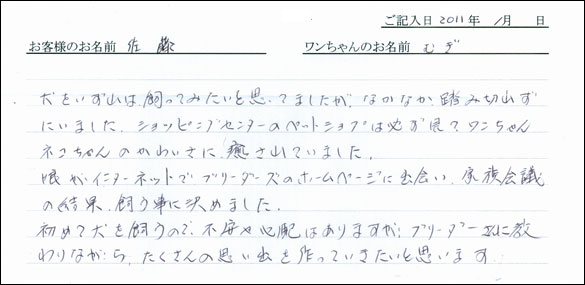 ご記入日 2011年 1月 日
お客様のお名前 佐藤 ワンちゃんのお名前 むぎ
犬をいずれは飼ってみたいと思ってましたが、なかなか踏み切れず
にいました。ショッピングセンターのペットショプは必ず見て、ワンちゃん
ネコちゃんのかわいさに癒されていました。
娘がインターネットでブリーダーズのホームページに出会い、家族会議
の結果、飼う事に決めました。
初めて犬を飼うので、不安や心配はありますが、ブリーダーさんに教
わりながら、たくさんの思い出を作っていきたいと思います。